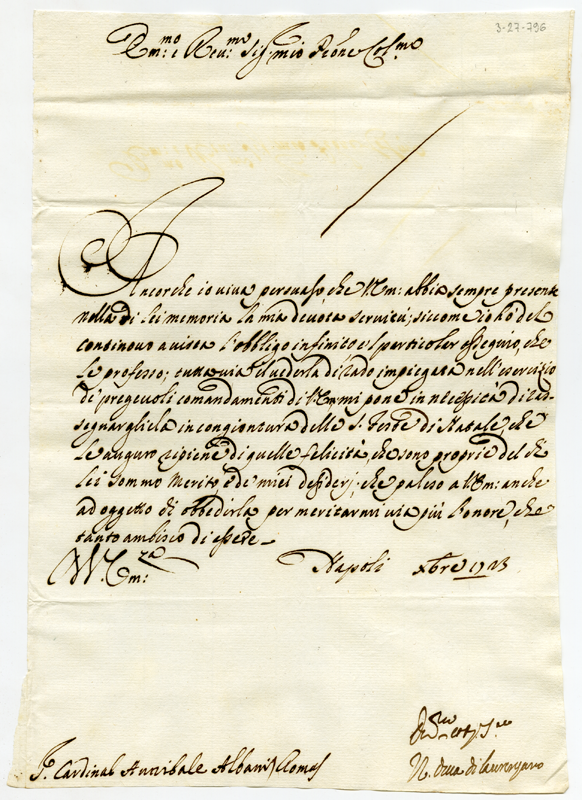 3-27-796
Em:mo e Reu:mo Sig.r mio P̃rone Col.mo
Ancorche io viva persuaso, che V. Em: abbia sempre presente
nella di lei memoria la mia devota servitù, siccome io hò del
continovo a vista l'obbligo infinito, e 'l particolar osseguio, che
le professo; tutta via il vederla di rado impiegata nell'esercizio
de' pregevoli comandamenti di V. Em: mi pone in necessità di ras-
segnargliela in congiontura delle S. Feste di Natale, che
le auguro ripiene di quelle felicità, che sono proprie del di
lei sommo Merito, e de' miei desiderj; che paleso a V. Em: anche
ad oggetto di obbedirla per meritarmi via più l'onore, che
tanto ambisco di essere
V. Em:za Napoli Xbre 1723
S.r Cardinal Annibale Albani Roma
N. Duca di Laurenzano